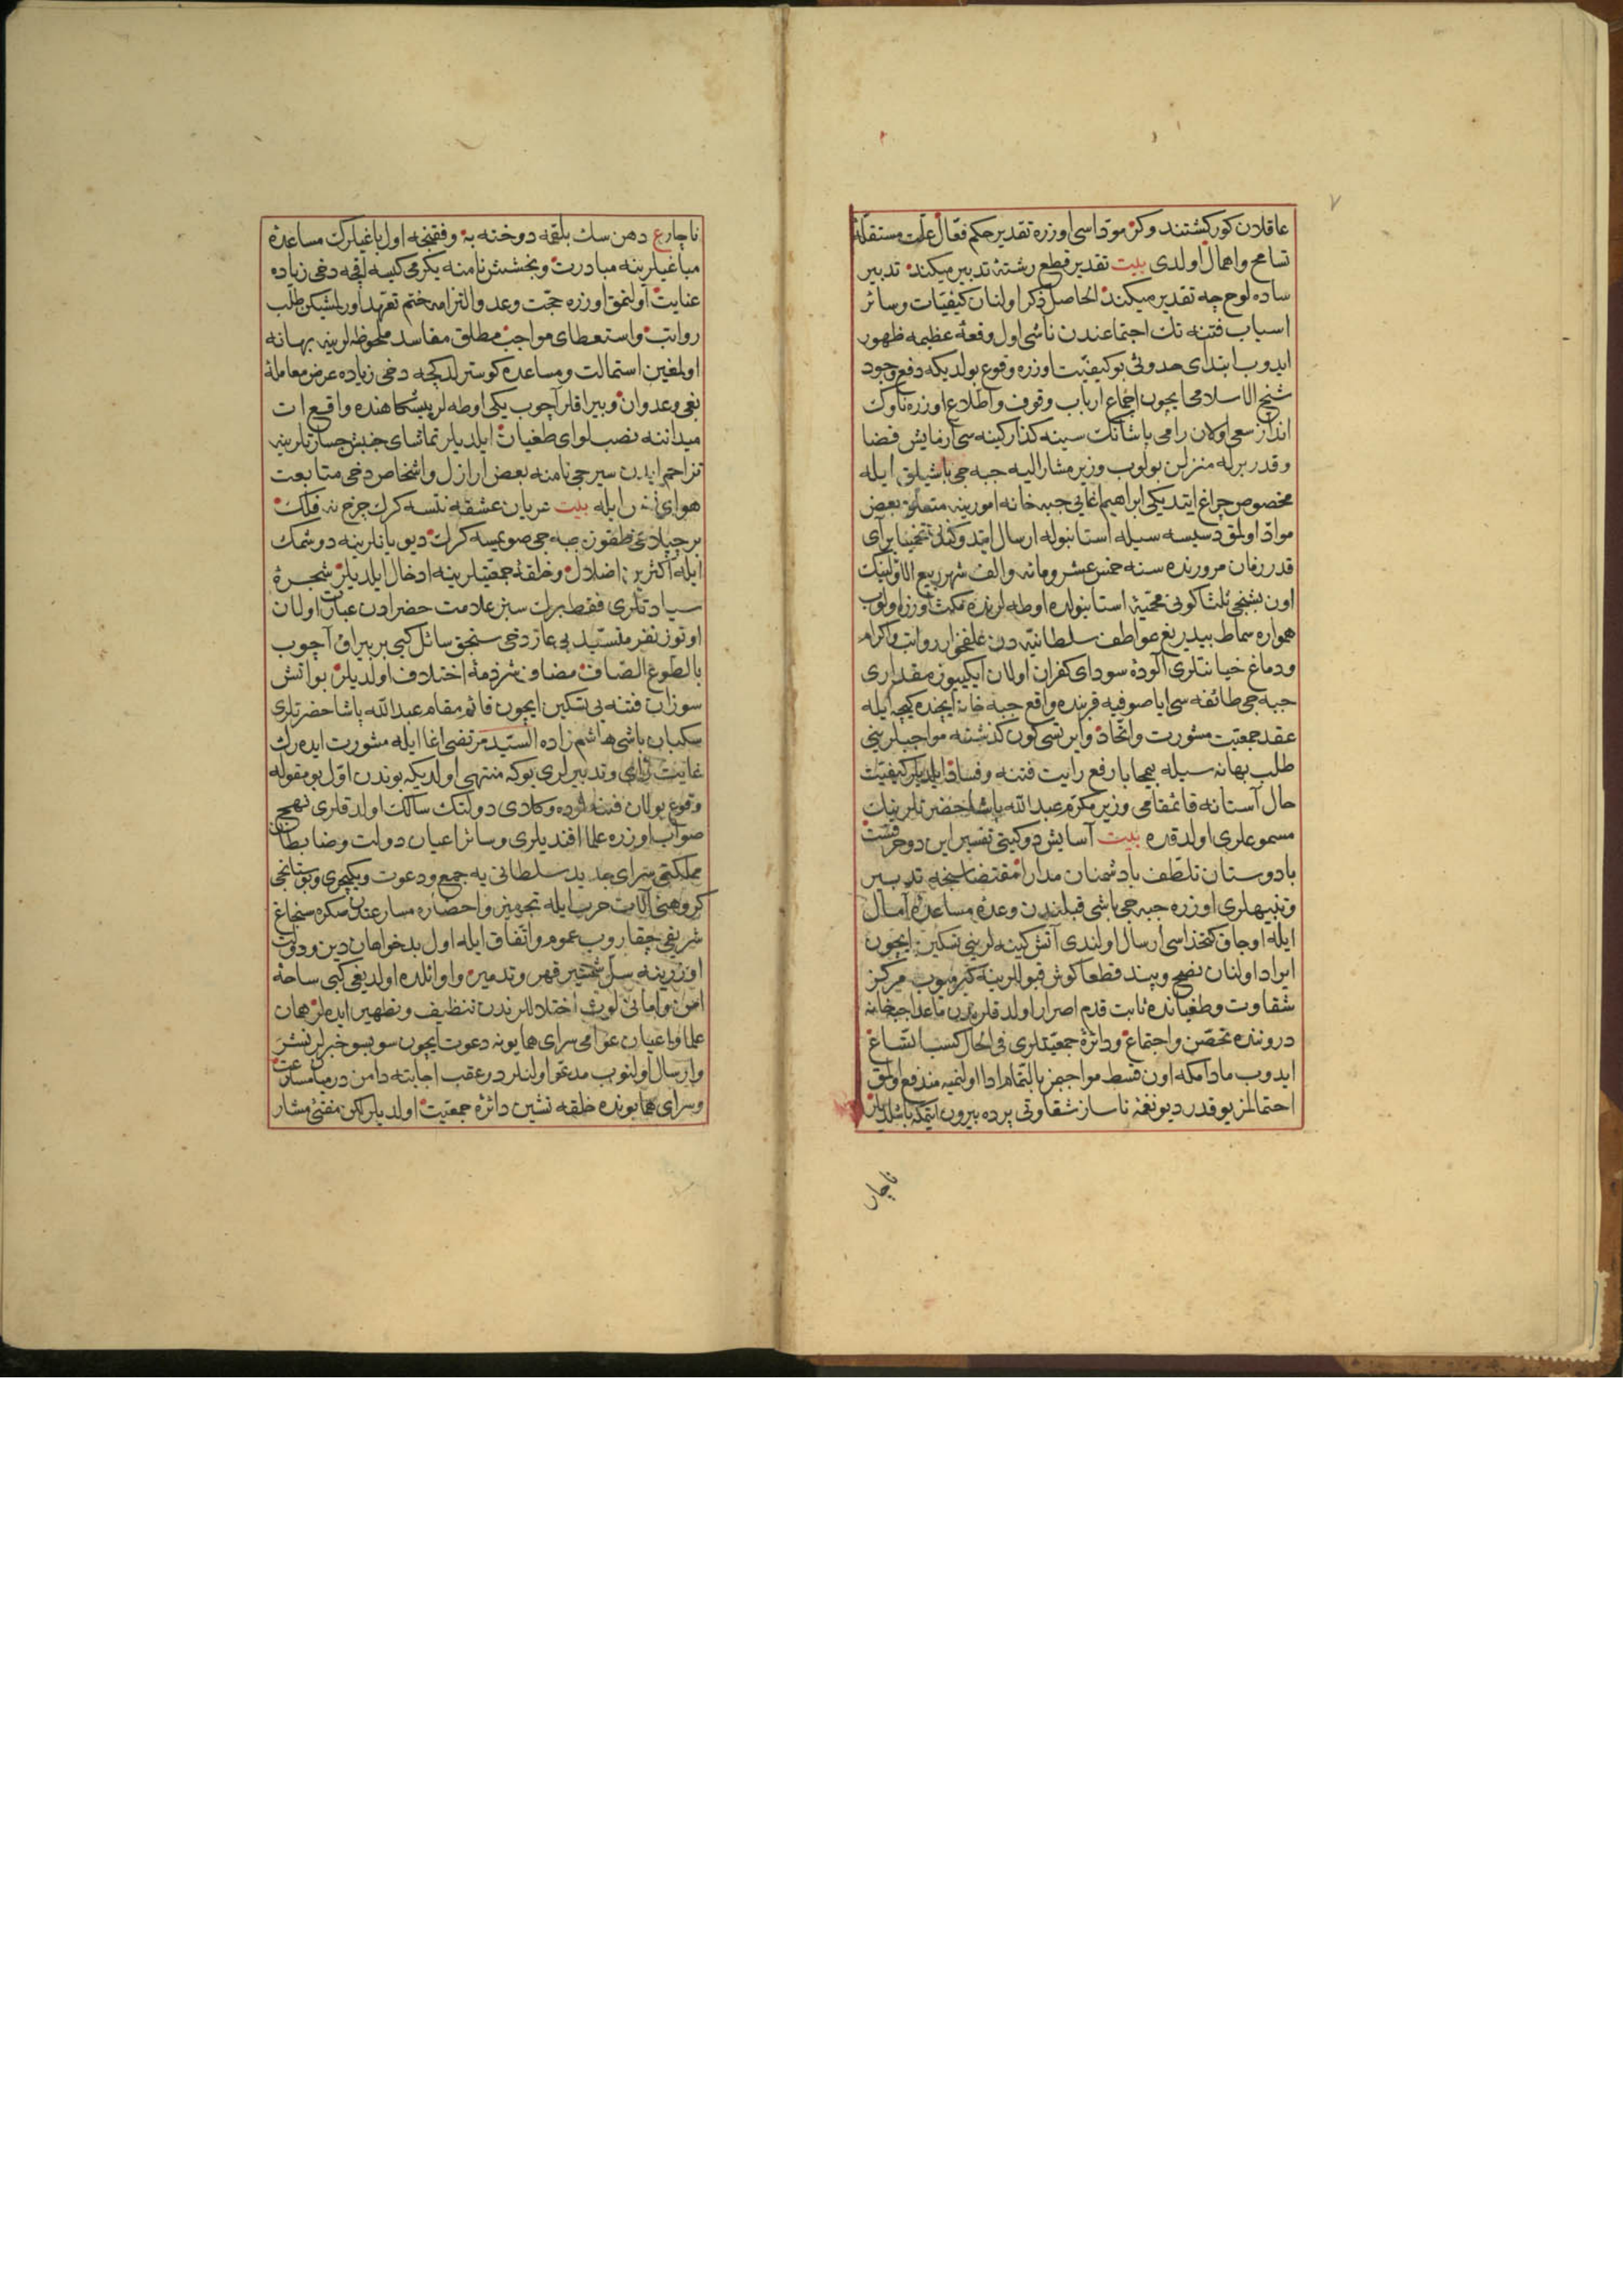 ٧
عاقلان كور كشتند و كر موداسى اوزره تقدير حكم فعال علت مستقلهٔ
تسامح و اهمال اولدى بيت تقدير قطع رشتهٔ تدبير ميكند تدبير
ساده لوح چه تقدير ميكند الحاصل ذكر اولنان كيفيات و سائر
اسباب فتنه نك اجتماعندن ناشى اول وقعهٔ عظيمه ظهور
ايدوب ابتداى حدوثى بو كيفيت اوزره وقوع بولديكه دفع وجود
شيخ الاسلامى ايچون اجماع ارباب وقوف و اطلاع اوزره ناوك
انداز سعى اولان رامى پاشانك سينه كذار كينه سى آزمايش قضا
و قدر برله منزلن بولوب وزير مشار اليه جبه جى باشيلق ايله
مخصوص چراغ ايتديكى ابراهيم اغايى جبه خانه امورينه متعلق بعض
مواد اولمق دسيسه سيله استانبوله ارسال
قدر زمان مرورنده سنه خمس عشر ومائه والف شهر ربيع الاولينك
اون بشنجى ثلثا كونى استانبولده اوطه لرنده مكث اوزره اولوب
همواره سماط بيدريغ عواطف سلطانيه دن علفخوار رواتب و اكرام
و دماغ خيانتلرى آلودهٔ سوداى كفران اولان ايكيوز مقدارى
جبه جى طائفه سى اياصوفيه قربنده واقع جبه خانه ايچنده كيجه ايله
عقد جمعيت مشورت و اتحاد و ايرتسى كون كذشته مواجبلرينى
طلب بهانه سيله بيمحابا رفع رايت فتنه و فساد ايلديلر كيفيت
حال آستانه قائمقامى وزير مكرم عبد الله پاشا حضرتلرينك
مسموعلرى اولدقده بيت آسايش دو كيتى تفسير اين دو حرفست
با دوستان تلطف با دشمنان مدارا مقتضاسنجه تدبير
و تنبيهلرى اوزره جبه جى باشى قبلندن وعدهٔ مساعدهٔ آمال
ايله اوجاق كتخداسى ارسال اولندى آتش كينه لرينى تسكين ايچون
ايراد اولنان نصح و پند قطعا كوش قبوللرينه كيرميوب مركز
شقاوت و طغيانده ثابت قدم اصرار اولدقلرندن ماعدا جبخانه
دروننده تحصن و اجتماع و دائرهٔ جمعيتلرى فى الحال كسب اتساع
ايدوب مادامكه اون قسط مواجبمز بالتمام ادا اولنميه مندفع اولمق
احتمالمز يوقدر ديو نغمهٔ ناساز شقاوتى پرده بيرون ايتمكه باشلديلر
ناچار
ناچار ع دهن سك بلقمه دوخته به وفقنجه اول باغيلرك مساعدهٔ
مباغيلرينه مبادرت و بخشش نامنه يكرمى كيسه اقچه دخى زياده
عنايت اولنمق اوزره حجت وعد و التزامه ختم تعهد اورلمشيكن طلب
رواتب و استعطاى مواجب مطلق مفاسد ملحوظه لرينه بهانه
اولمغين استمالت و مساعده كوسترلدكجه دخى زياده عرض معاملهٔ
بغى و عدوان و بيراقلر آچوب يكى اوطه لر پيشكاهنده واقع ات
ميداننه نصب لواى طغيان ايلديلر تماشاى جنبش جسارتلرينه
تزاحم ايدن سيرجى نامنه بعض ارازل و اشخاص دخى متابعت
ايله بيت عريان عشقه نتسه كرك چرخ نه فلك
بر چپلاغى طقوز جبه جى صويمسه كرك ديو يانلرينه دوشمك
ايله اكثرين اضلال و حلقهٔ جمعيتلرينه ادخال ايلديلر شجرهٔ
سيادتلرى فقط برك سبز علامت حضرادن عبارت اولان
اوتوز نفر متسيد بى عار دخى سنجق سائل كبى بر بيراق آچوب
بالطوع الضاف مضاف شرذمهٔ اختلاف اولديلر بو آتش
سوزان فتنه يى تسكين ايچون قائم مقام عبد الله پاشا حضرتلرى
سكبان باشى هاشم زاده السيد مرتضى اغا ايله مشورت ايده رك
غايت راى و تدبيرلرى بوكه منتهى اولديكه بوندن اول بو مقوله
وقوع بولان فتنه لرده وكلاى دولتك سالك اولدقلرى نهج
صواب اوزره علما افنديلرى و سائر اعيان دولت و ضابطان
مملكتى سراى جديد سلطانى يه جمع و دعوت و يكيچرى و بوستانجى
كروهنى آلات حرب ايله تجهيز و احضاره مسارعتدن صكره سنجاغ
شريفى چقاروب عموم و اتفاق ايله اول بدخواهان دين و دولت
اوزرينه سل شمشير قهر و تدمير و اوائلده اولديغى كبى ساحهٔ
امن و امانى لوث اختلاللرندن تنظيف و تطهير ايده لر همان
علما و اعيان عوامى سراى همايونه دعوت ايچون سوبسو خبرلر نشر
و ارسال اولنوب مدعو اولنلر در عقب اجابته دامن در ميان مسارعت
و سراى همايونده حلقه نشين دائرهٔ جمعيت اولديلر لكن مفتئ مشار